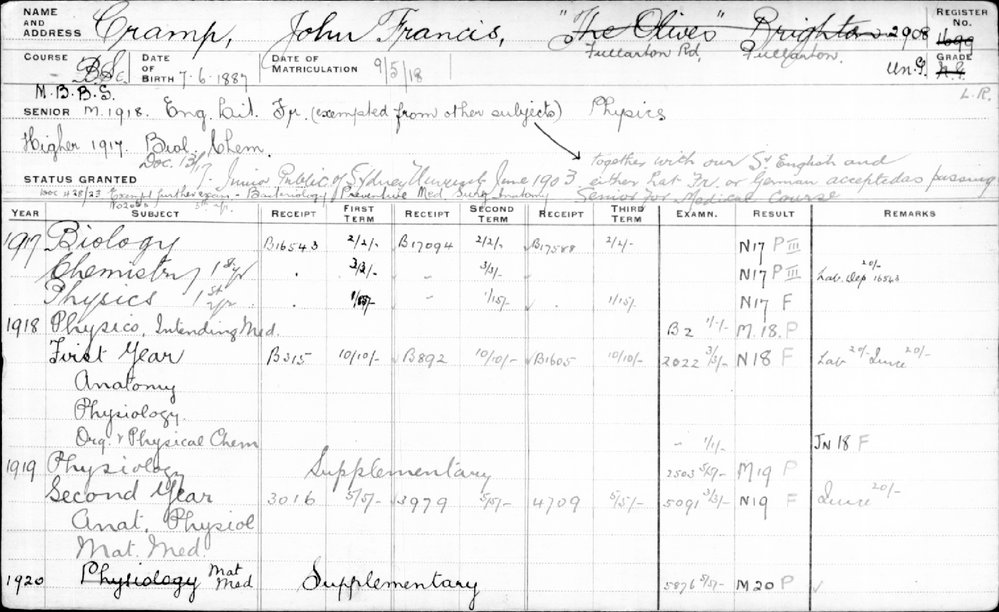 NAME AND ADDRESS Cramp, John Francis, "The Olives" Brighton 2908 REGISTER No. 1699
Fullarton Rd, Fullarton.
COURSE B.Sc. DATE OF BIRTH 7.6.1887 DATE OF MATRICULATION 9/5/18 Un.G. GRADE
M.B.B.S. L.R.
SENIOR M.1918. Eng. Lit. Fr. (exempted from other subjects) Physics
Higher 1917. Biol. Chem.
Doc. 13/17 together with our Sr English and
STATUS GRANTED Junior Public of Sydney University June 1903 either Lat. Fr. or German accepted as passing
Senior for Medical Course
Doc 428/23 Exempt further exam - Bacteriology, Preventive Med. Surg. Anatomy
YEAR SUBJECT RECEIPT FIRST TERM RECEIPT SECOND TERM RECEIPT THIRD TERM EXAMN. RESULT REMARKS
1917 Biology B16543 2/2/- B17094 2/2/- B17588 2/2/- N17 P III
Chemistry 1st yr . 3/3/- " 3/3/- N17 P III Lab. Dep 20/- 16543
Physics 1st yr . 1/15/- " 1/15/- . 1/15/- N17 F
1918 Physics, Intending Med. B2 1/-/- M.18. P
First Year B315 10/10/- B892 10/10/- B1605 10/10/- 2022 3/3/- N18 F Lab 20/- 20/-
Anatomy
Physiology.
Org. & Physical Chem " 1/1/- JN 18 F
1919 Physiology Supplementary 2503 5/5/- M19 P
Second Year 3016 5/5/- 3979 5/5/- 4709 5/5/- 5091 3/3/- N19 F 20/-
Anat. Physiol
Mat. Med.
1920 Physiology Mat Med Supplementary 5876 5/5/- M20 P ✓